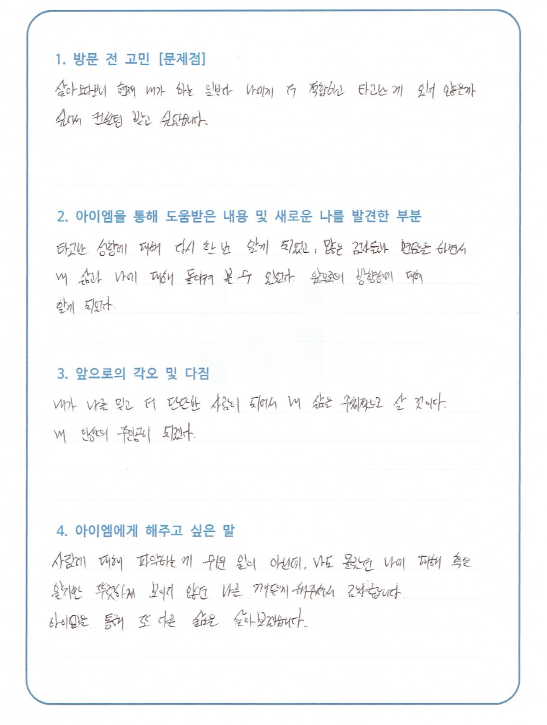 1. 방문 전 고민 [문제점]
살아보면서 현재 내가 하는 일보다 나에게 더 적합하고 타고난 게 있지 않은가
싶어서 컨설팅 받고 싶었습니다.
2. 아이엠을 통해 도움받은 내용 및 새로운 나를 발견한 부분
타고난 성향에 대해 다시 한 번 알게 되었고, 많은 검사들과 면담을 하면서
내 삶과 나에 대해 돌이켜 볼 수 있었다. 앞으로의 방향성에 대해
알게 되었다.
3. 앞으로의 각오 및 다짐
내가 나를 믿고 더 단단한 사람이 되어서 내 삶을 주체적으로 살 것이다.
내 인생의 주인공이 되겠다.
4. 아이엠에게 해주고 싶은 말
사람에 대해 파악하는 게 쉬운 일이 아닌데, 나도 몰랐던 나에 대해 혹은
알지만 뚜렷하게 보이지 않던 나를 깨닫게 해주셔서 감사합니다.
아이엠을 통해 또 다른 삶을 살아보겠습니다.